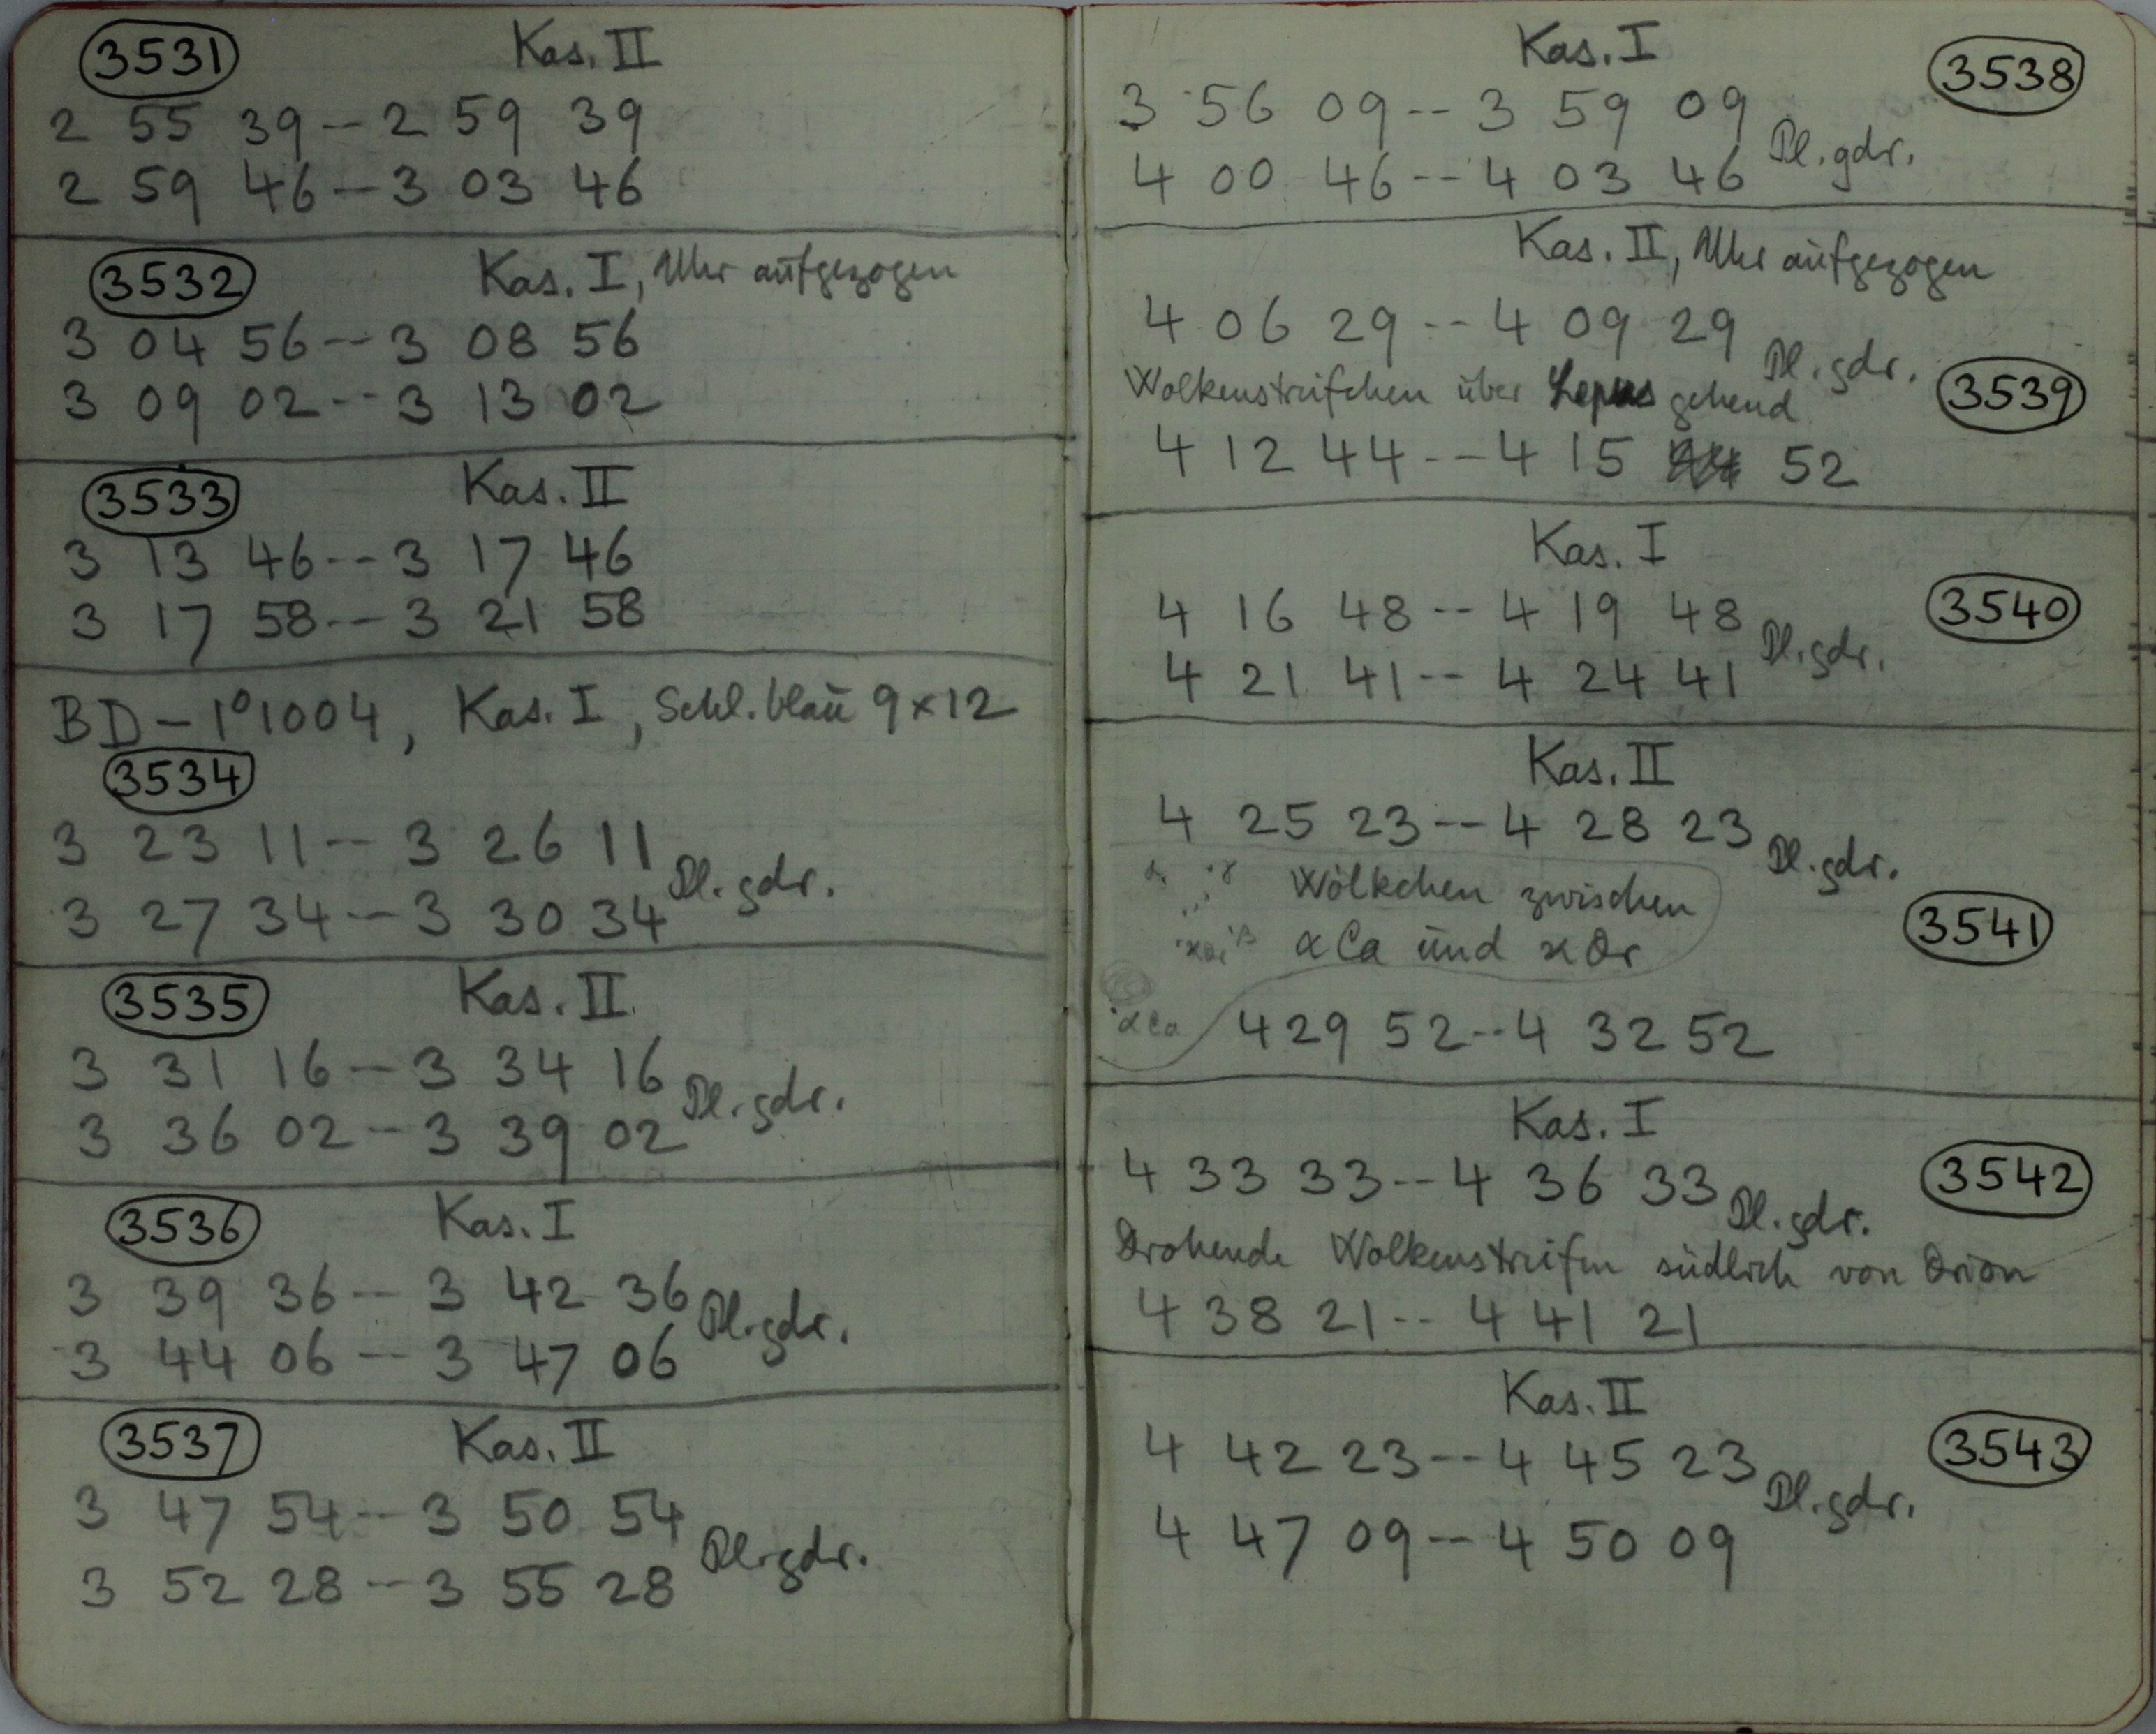 3531 Kas. II
2 55 39 -- 2 59 39
2 59 46 -- 3 03 46
3532 Kas. I, Uhr aufgezogen
3 04 56 -- 3 08 56
3 09 02 -- 3 13 02
3533 Kas. II
3 13 46 -- 3 17 46
3 17 58 -- 3 21 58
BD - 1°1004, Kas. I, Schl. blau 9 x 12
3534
3 23 11 -- 3 26 11
Pl. gdr.
3 27 34 -- 3 30 34
3535 Kas. II
3 31 16 -- 3 34 16
Pl. gdr.
3 36 02 -- 3 39 02
3536 Kas. I
3 39 36 -- 3 42 36
Pl. gdr.
3 44 06 -- 3 47 06
3537 Kas. II
3 47 54 -- 3 50 54
Pl. gdr.
3 52 28 -- 3 55 28
Kas. I 3538
3 56 09 -- 3 59 09
Pl. gdr.
4 00 46 -- 4 03 46
Kas. II, Uhr aufgezogen
4 06 29 -- 4 09 29
Pl. gdr.
Wolkenstreifchen über Lepus gehend 3539
4 12 44 -- 4 15 52
Kas. I
4 16 48 -- 4 19 48 3540
Pl. gdr.
4 21 41 -- 4 24 41
Kas. II
4 25 23 -- 4 28 23
Pl. gdr.
Wölkchen zwischen
α Ca und κ Or 3541
α Ca
4 29 52 -- 4 32 52
Kas. I
4 33 33 -- 4 36 33 3542
Pl. gdr.
Drohende Wolkenstreifen südlich von Orion
4 38 21 -- 4 41 21
Kas. II
4 42 23 -- 4 45 23 3543
Pl. gdr.
4 47 09 -- 4 50 09